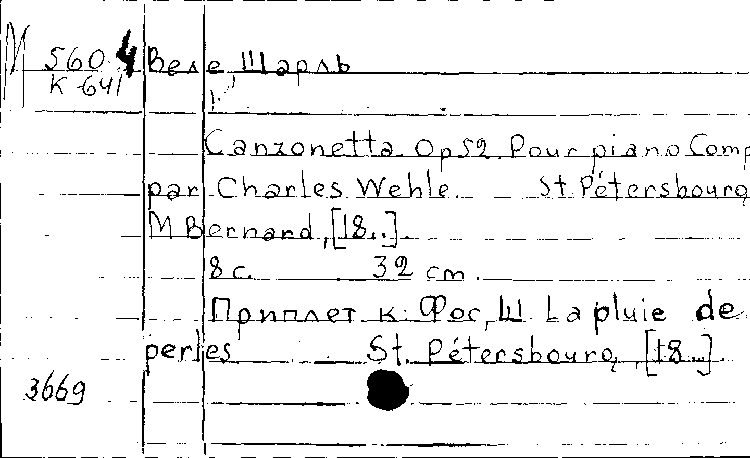 М 560 4 Веле, Шарль
К-641
Canzonetta. Op 52. Pour piano Comp
par Charles Wehle. St. Pétersbourg
M Bernard, [18..].
8 с. 32 cm.
Приплет к: Фос, Ш. La pluie de
perles St. Pétersbourg, [18...].
3669